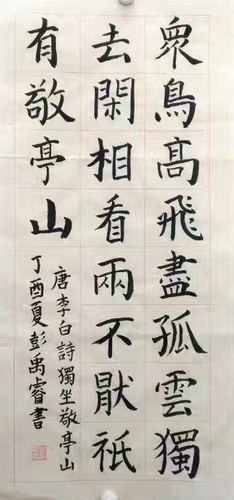 眾鳥高飛盡孤雲獨
去閑相看兩不厭祇
有敬亭山
唐李白詩獨坐敬亭山
丁酉夏彭禹睿書